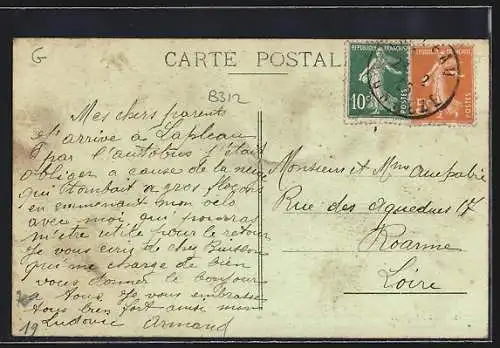 G
CARTE POSTALE
B312
REPUBLIQUE FRANCAISE
10c
POSTES
REPUBLIQUE FRANCAISE
POSTES
Mes chers parents
J'arrive à Lapleau
par l'autobus j'étais
obliger a cause de la neige
qui tombait a gros flocons
en emmenant mon velo
avec moi qui pourras
m'etre utile pour le retour
Je vous ecris de chez Buisson
qui me charge de bien
vous donner le bonjour
a tous. Je vous embrasse
tous bien fort ainsi que
Ludovic Armand
19
Monsieur et Mme
Rue des Aqueducs 17
Roanne
Loire